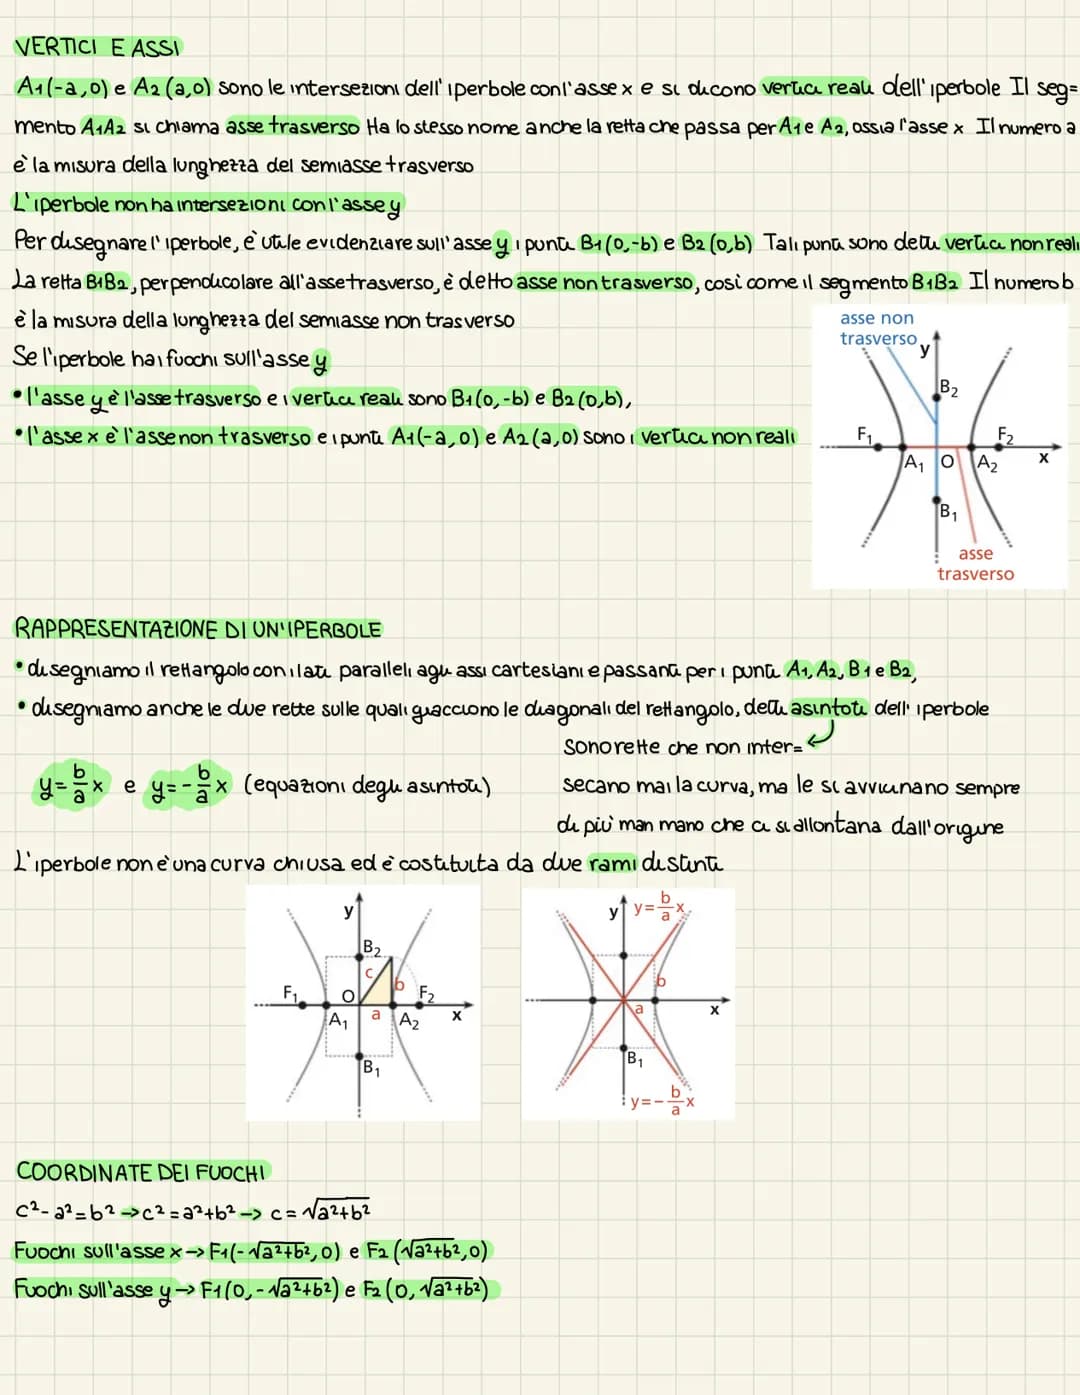 VERTICI E ASSI
A1(-a,0) e A2(a,0) sono le intersezioni dell'iperbole con l'asse x e si dicono vertici reali dell'iperbole Il seg=
mento A1A2 si chiama asse trasverso Ha lo stesso nome anche la retta che passa per A1 e A2, ossia l'asse x Il numero a
è la misura della lunghezza del semiasse trasverso
L'iperbole non ha intersezioni con l'asse y
Per disegnare l'iperbole, è utile evidenziare sull'asse y i punti B1(0,-b) e B2(0,b) Tali punti sono detti vertici non reali
La retta B1B2, perpendicolare all'asse trasverso, è detto asse non trasverso, così come il segmento B1B2 Il numero b
è la misura della lunghezza del semiasse non trasverso
Se l'iperbole ha i fuochi sull'asse y
•l'asse y è l'asse trasverso e i vertici reali sono B1(0,-b) e B2(0,b),
•l'asse x è l'asse non trasverso e i punti A1(-a,0) e A2(a,0) sono i vertici non reali
asse non
trasverso
y
B2
F1
F2
A1
O
A2
x
B1
asse
trasverso
RAPPRESENTAZIONE DI UN'IPERBOLE
•disegniamo il rettangolo con i lati paralleli agli assi cartesiani e passanti per i punti A1, A2, B1 e B2,
•disegniamo anche le due rette sulle quali giacciono le diagonali del rettangolo, detti asintoti dell'iperbole
sono rette che non inter=
y=b/a x e y=-b/a x (equazioni degli asintoti)
secano mai la curva, ma le si avvicinano sempre
di più man mano che ci si allontana dall'origine
L'iperbole non è una curva chiusa ed è costituita da due rami distinti
y
B2
c
b
F1
O
F2
A1
a
A2
x
B1
y
y=b/a x
b
a
x
B1
y=-b/a x
COORDINATE DEI FUOCHI
c²-a²=b² → c²=a²+b² → c=√a²+b²
Fuochi sull'asse x → F1(-√a²+b²,0) e F2(√a²+b²,0)
Fuochi sull'asse y → F1(0,-√a²+b²) e F2(0,√a²+b²)